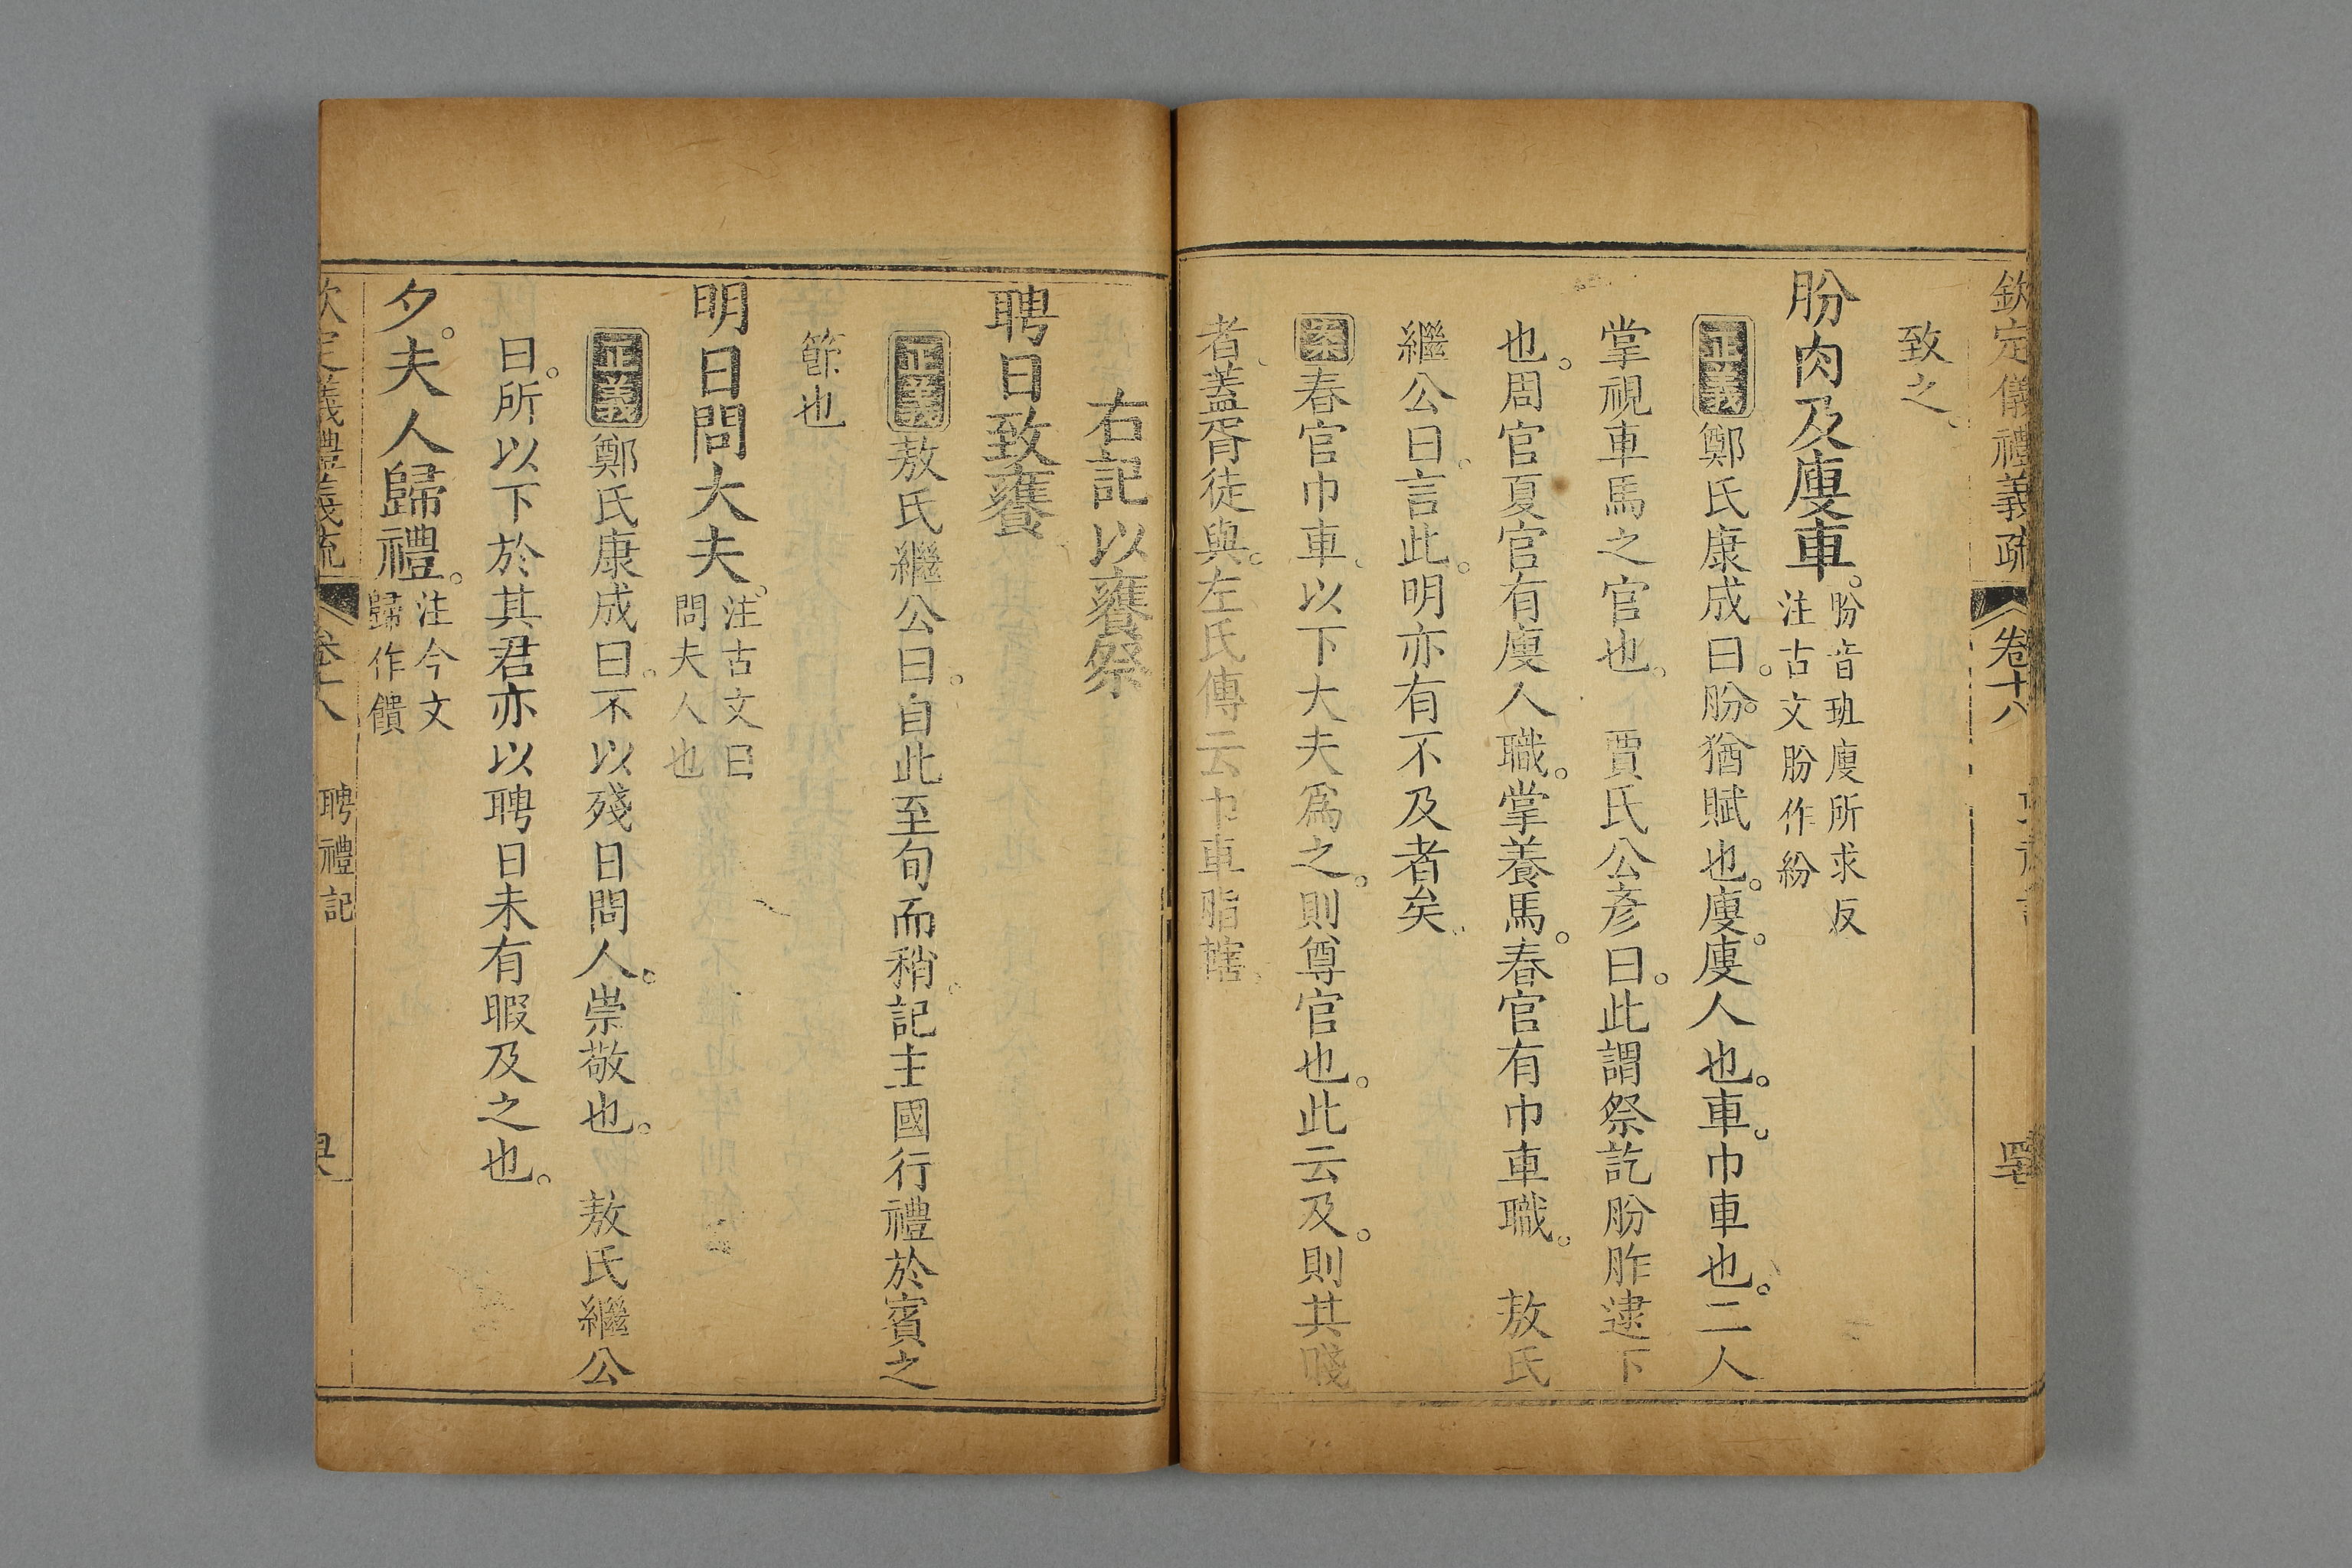 欽定儀禮義疏 卷十八
致之
肦肉及廋車。肦音班廋所求反
注古文肦作紛
正義鄭氏康成曰。肦。猶賦也。廋。廋人也。車。巾車也。二人
掌視車馬之官也。 賈氏公彥曰。此謂祭訖肦胙逮下
也。周官夏官有廋人職。掌養馬。春官有巾車職。 敖氏
繼公曰。言此。明亦有不及者矣
案春官巾車。以下大夫爲之。則尊官也。此云及。則其賤
者。蓋胥徒與。左氏傳云巾車脂轄。
右記以饔祭
聘日致饔
正義敖氏繼公曰。自此至旬而稍。記主國行禮於賓之
節也
明日問大夫。注古文曰
問夫人也
正義鄭氏康成曰。不以殘日問人。崇敬也。 敖氏繼公
曰。所以下於其君亦以聘日未有暇及之也。
夕。夫人歸禮。注今文
歸作饋
欽定儀禮義疏 卷十八 聘禮記